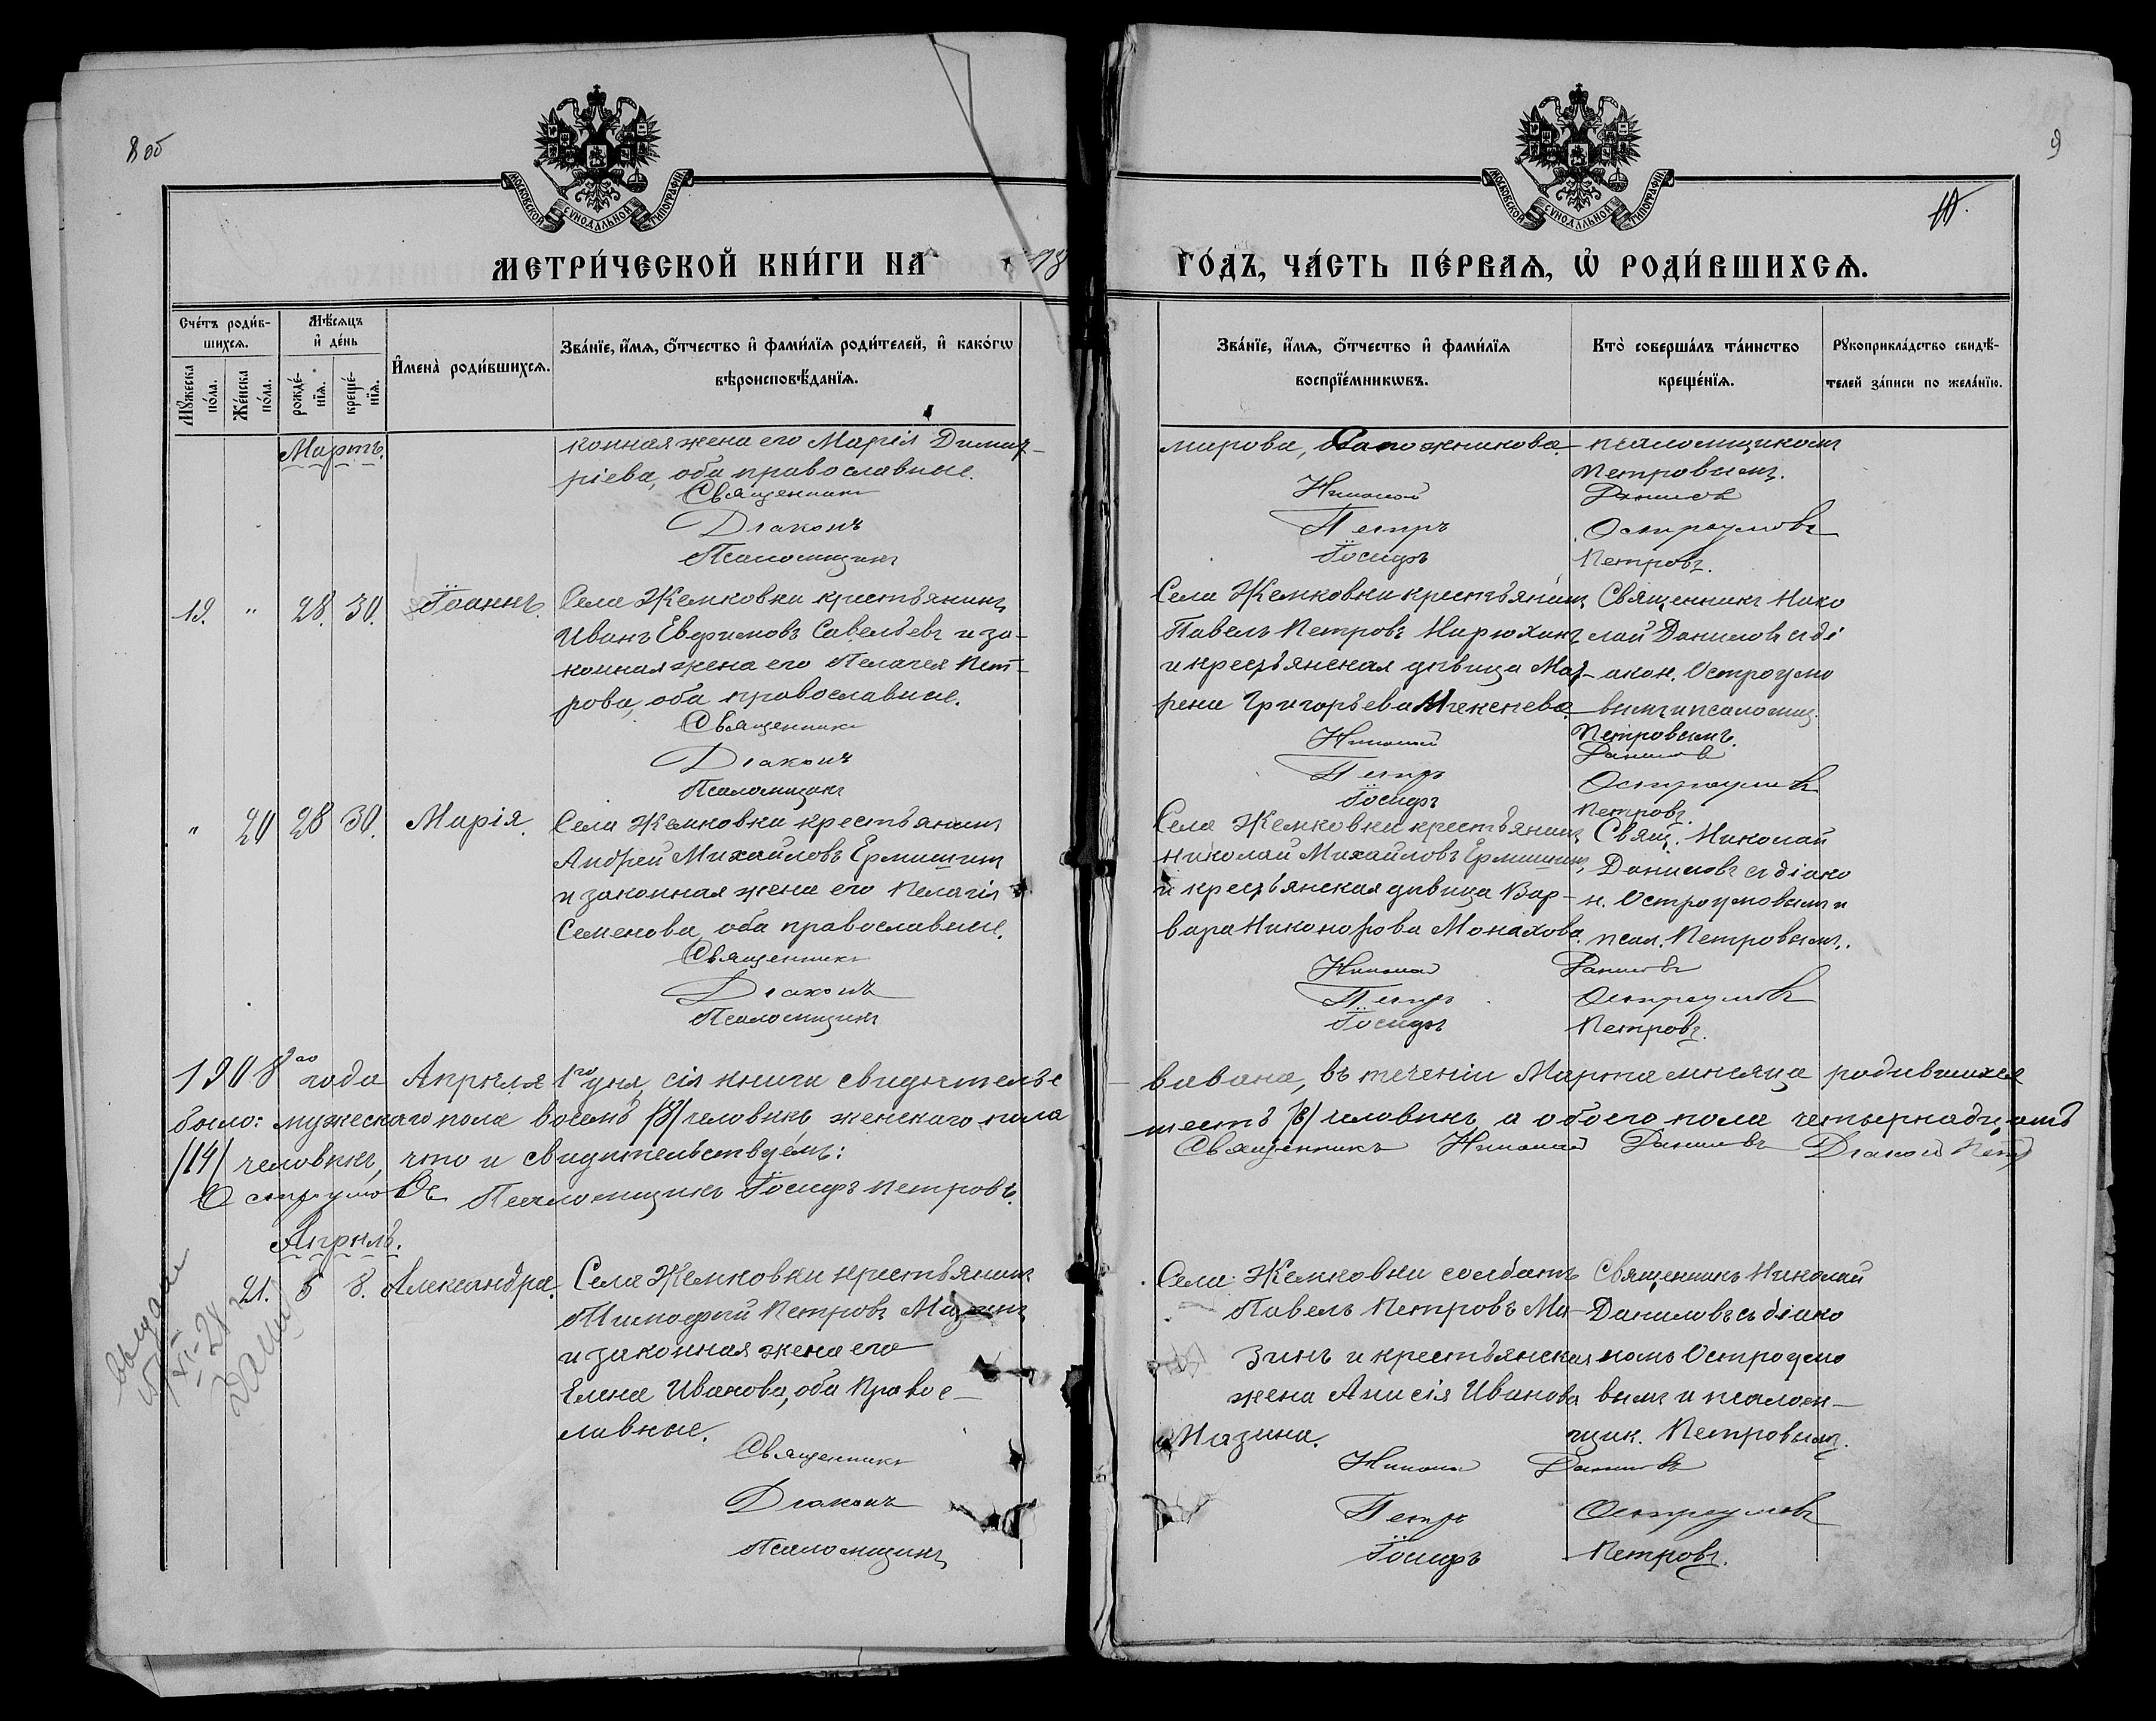 8 об
9
МОСКОВСКОЙ СѴНОДАЛЬНОЙ ТИПОГРАФІИ
МОСКОВСКОЙ СѴНОДАЛЬНОЙ ТИПОГРАФІИ
МЕТРИ́ЧЕСКОЙ КНИ́ГИ НА
ГО́ДЪ, ЧА́СТЬ ПЕ́РВАѦ, Ѽ РОДИ́ВШИХСѦ.
Сче́тъ роди́в-
шихсѧ.
Мꙋ́жеска по́ла.
Же́нска по́ла.
Мѣ́сѧцъ
и҆ де́нь
рожде́-
нїѧ.
креще́-
нїѧ.
И҆мена̀ роди́вшихсѧ.
Зва́нїе, и҆́мѧ, ѻ҆́тчество и҆ фами́лїѧ роди́телей, и҆ како́гѡ
вѣроисповѣ́данїѧ.
Зва́нїе, и҆́мѧ, ѻ҆́тчество и҆ фами́лїѧ
воспрїе́мникѡвъ.
Кто̀ соверша́лъ та́инство
креще́нїѧ.
Рꙋкоприкла́дство свидѣ́-
телей за́писи по жела́нїю.
Мартъ.
конная жена его Марія Димит-
ріева, оба православные.
Священникъ
Діаконъ
Псаломщикъ
мирова, Сапожникова.
Николай
Петръ
Іосифъ
псаломщикомъ
Петровымъ.
Даниловъ
Остроумовъ
Петровъ.
19. " 28. 30. Іоаннъ.
Села Жемковки крестьянинъ
Иванъ Евфимовъ Савельевъ и за-
конная жена его Пелагея Пет-
рова, оба православные.
Священникъ
Діаконъ
Псаломщикъ
Села Жемковки крестьянинъ
Павелъ Петровъ
и крестьянская дѣвица Мат-
рена Григорьева
Николай
Петръ
Іосифъ
Священникъ Нико
лай Даниловъ съ ді
акон. Остроумо
вымъ и псаломщ.
Петровымъ.
Даниловъ
Остроумовъ
Петровъ.
" 20 28 30. Марія.
Села Жемковки крестьянинъ
Андрей Михайловъ Ермишинъ
и законная жена его Пелагія
Семенова, оба православные.
Священникъ
Діаконъ
Псаломщикъ
Села Жемковки крестьянинъ
Николай Михайловъ Ермишинъ,
и крестьянская дѣвица Вар-
вара Никонорова Монахова.
Николай
Петръ
Іосифъ
Свящ. Николай
Даниловъ съ діако
н. Остроумовымъ и
псал. Петровымъ.
Даниловъ
Остроумовъ
Петровъ.
1908го года Апрѣля 1го дня, сія книга свидѣтельс
вована, въ теченіи Марта мѣсяца родившихся
было: мужескаго пола восемь /8/ человѣкъ женскаго пола
шесть /6/ человѣкъ, а обоего пола четырнадцать
/14/ человѣкъ, что и свидѣтельствуемъ:
Священникъ Николай Даниловъ Діаконъ Петр
Остроумовъ Псаломщикъ Іосифъ Петровъ.
Апрѣль.
21. 5 8. Александра.
Села Жемковки крестьянинъ
Тимофей Петровъ Мазинъ
и законная жена его
Елена Иванова, оба Правос-
лавные.
Священникъ
Діаконъ
Псаломщикъ
Села Жемковки солдатъ
Павелъ Петровъ Ма-
зинъ и крестьянская
жена Анисія Иванова
Мазина.
Николай
Петръ
Іосифъ
Священникъ Николай
Даниловъ съ діако
номъ Остроумо
вымъ и псалом-
щик. Петровымъ.
Даниловъ
Остроумовъ
Петровъ.